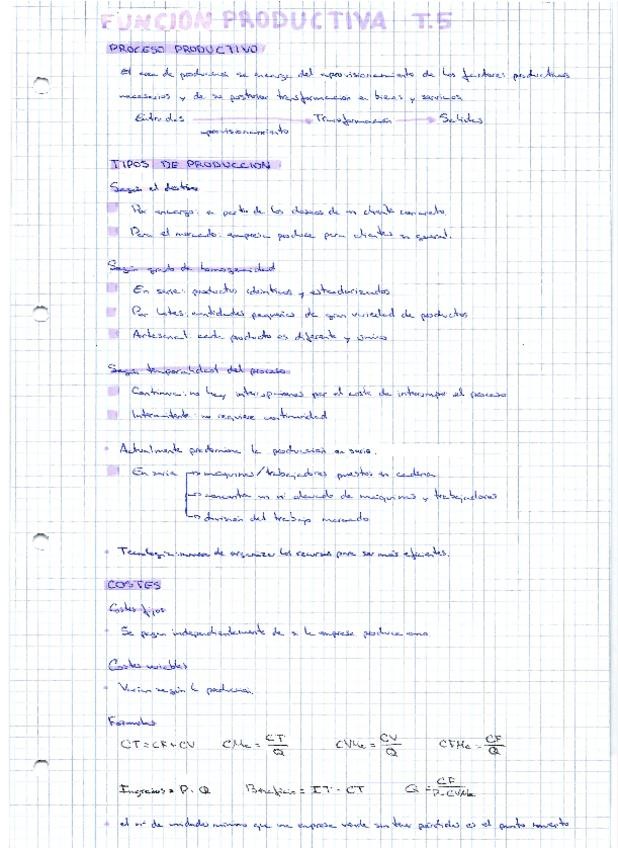 FUNCION PRODUCTIVA T.5
PROCESO PRODUCTIVO
El area de produccion se encarga del aprovisionamiento de los factores productivos
necesarios y de su posterior transformacion en bienes y servicios
Entradas Transformacion Salidas
aprovisionamiento
TIPOS DE PRODUCCION
Según el destino
Por encargo: a partir de los deseos de un cliente concreto
Para el mercado: empresa produce para clientes en general.
Según grado de homogeneidad
En serie: productos identicos y estandarizados
Por lotes: cantidades pequeñas de gran variedad de productos
Artesanal: cada producto es diferente y único
Según temporalidad del proceso
Continua: no hay interrupciones por el coste de interrumpir el proceso
Intermitente: no requiere continuidad
Actualmente predomina la produccion en serie.
En serie máquinas/trabajadores puestos en cadena
necesita un nº elevado de máquinas y trabajadores
división del trabajo marcada
Tecnología: manera de organizar los recursos para ser más eficientes.
COSTES
Costes fijos
Se pagan independientemente de si la empresa produce o no
Costes variables
Varian según la produccion.
Formulas
CT = CF + CV CMe = CT/Q CVMe = CV/Q CFMe = CF/Q
Ingresos = P · Q Beneficio = IT - CT Q = CF/P-CVMe
el nº de unidades minimo que una empresa vende sin tener pérdidas es el punto muerto